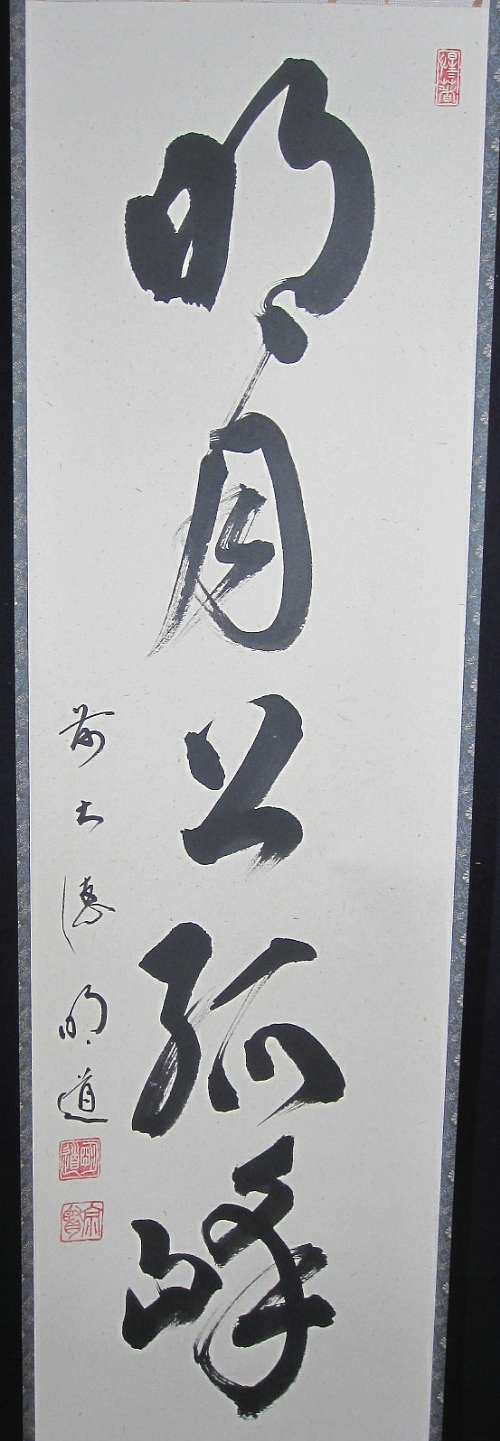 明月上孤峰
前大徳明道